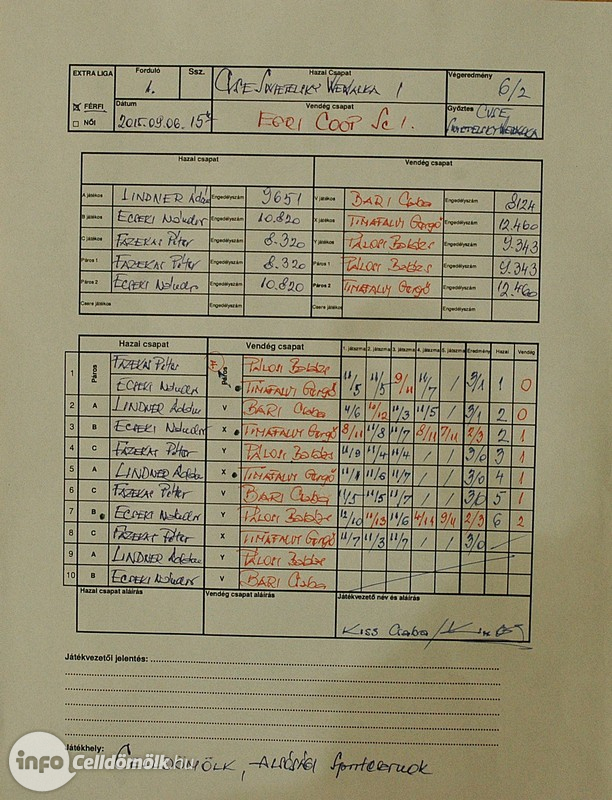 EXTRA LIGA Forduló Ssz. Hazai Csapat Végeredmény
1. CVSE Swietelsky Wewalka I 6/2
☒ FÉRFI Dátum Vendég csapat Győztes CVSE
□ NŐI 2015.09.06. EGRI COOP SC 1. Swietelsky Wewalka
Hazai csapat Vendég csapat
A játékos LINDNER Ádám Engedélyszám 9651 V játékos BARI Csaba Engedélyszám 8124
B játékos ECSEKI Nándor Engedélyszám 10.820 X játékos TIMAFALVI Gergő Engedélyszám 12.460
C játékos FAZEKAS Péter Engedélyszám 8.320 Y játékos PÁLOSI Balázs Engedélyszám 9.343
Páros 1 FAZEKAS Péter Engedélyszám 8.320 Páros 1 PÁLOSI Balázs Engedélyszám 9.343
Páros 2 ECSEKI Nándor Engedélyszám 10.820 Páros 2 TIMAFALVI Gergő Engedélyszám 12.460
Csere játékos Engedélyszám Csere játékos Engedélyszám
Hazai csapat Vendég csapat 1. játszma 2. játszma 3. játszma 4. játszma 5. játszma Eredmény Hazai Vendég
1 Páros FAZEKAS Péter Páros PÁLOSI Balázs
ECSEKI Nándor TIMAFALVI Gergő 11/5 11/5 9/11 11/7 / 3/1 1 0
2 A LINDNER Ádám V BARI Csaba 10/12 11/3 11/5 / 3/1 2 0
3 B ECSEKI Nándor X TIMAFALVI Gergő 8/11 11/8 11/7 8/11 7/11 2/3 2 1
4 C FAZEKAS Péter Y PÁLOSI Balázs 11/9 11/4 11/4 / / 3/0 3 1
5 A LINDNER Ádám X TIMAFALVI Gergő 11/6 11/7 / / 3/0 4 1
6 C FAZEKAS Péter V BARI Csaba 11/5 11/5 11/7 / / 3/0 5 1
7 B ECSEKI Nándor Y PÁLOSI Balázs 12/10 11/13 11/6 4/11 9/11 2/3 6 2
8 C FAZEKAS Péter X TIMAFALVI Gergő 11/7 11/3 11/7 / / 3/0
9 A LINDNER Ádám Y PÁLOSI Balázs
10 B ECSEKI Nándor V BARI Csaba
Hazai csapat aláírás Vendég csapat aláírás Játékvezető név és aláírás
KISS Csaba
Játékvezetői jelentés:
Játékhely:
CELLDÖMÖLK, ALSÓSÁGI Sportcsarnok
info Celldömölk.hu